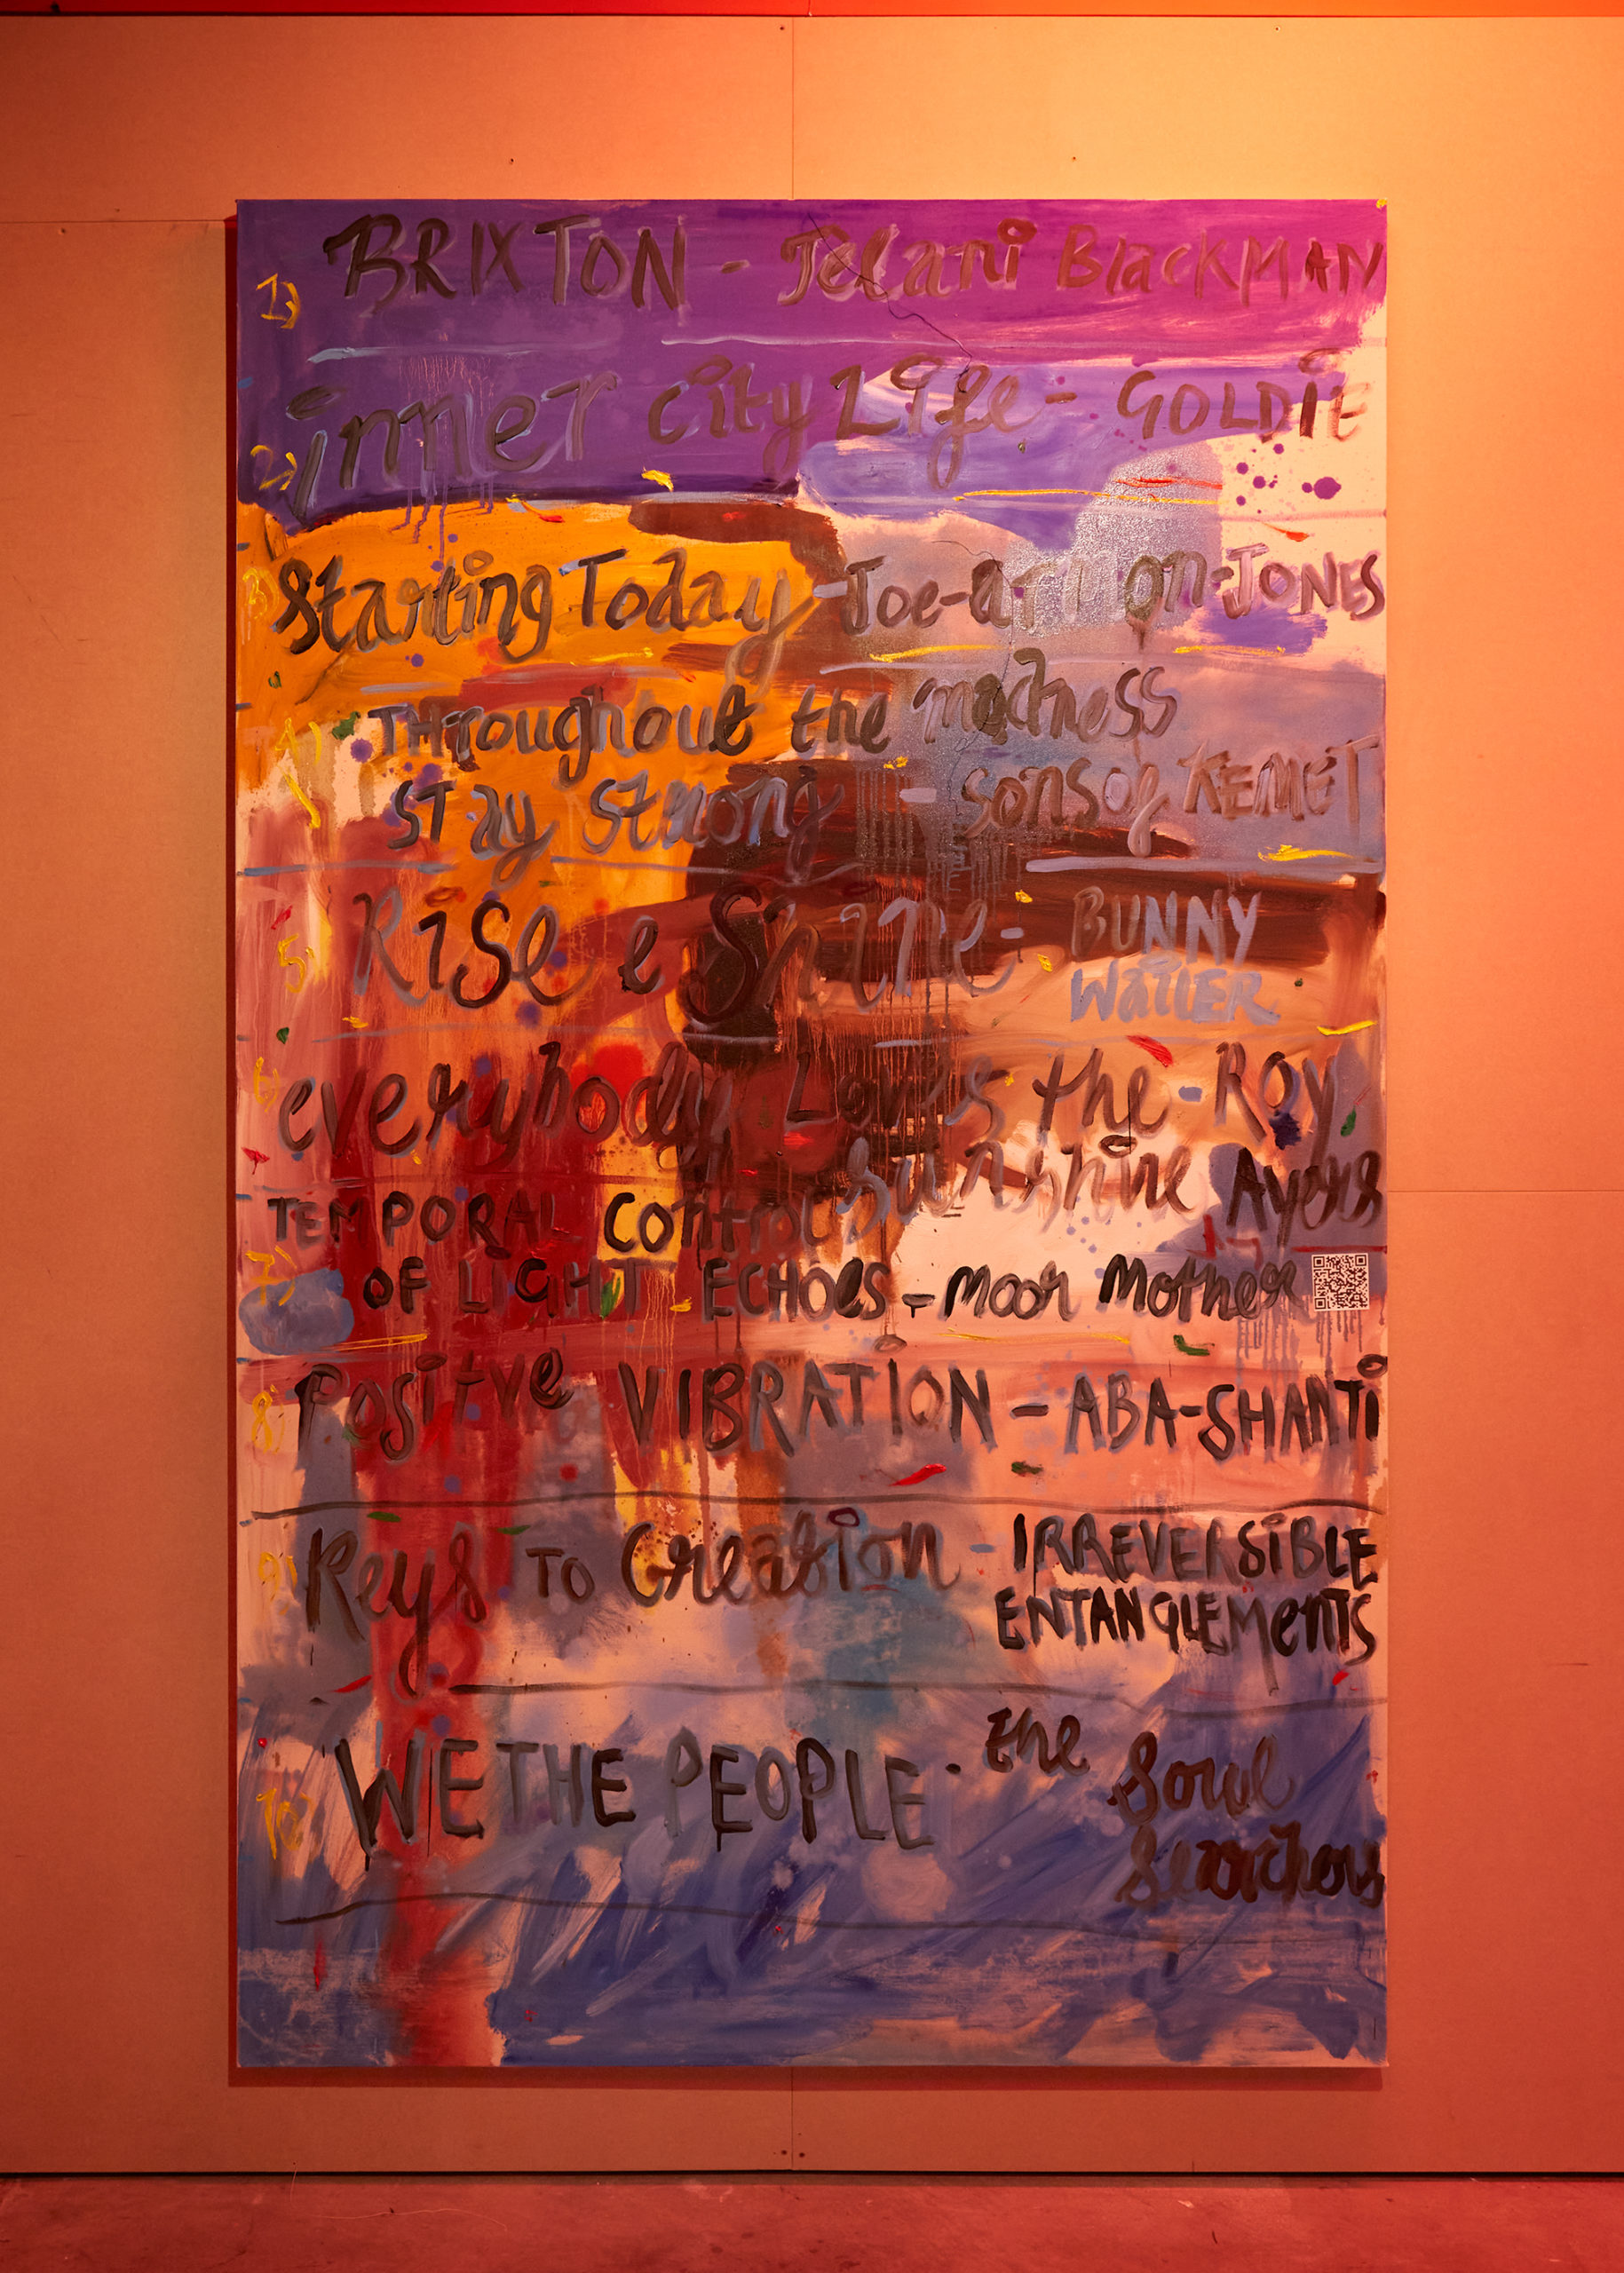 1) BRIXTON - Jelani BlackMAN
2) inner city Life - GOLDiE
3) Starting Today - Joe-armon-JONES
4) THroughout the madness
STay Strong - sons of KEMET
5. RiSe e Shine - BUNNY
WaiLER
6) everybody Loves the - ROY
sunshine Ayers
TEMPORAL Control
7) OF LIGHT ECHOes - moor Mother
8) Positve VIBRATiON - ABA-SHANTi
9) Keys TO Creation - IRREVERSiBLE
ENTANGLEMenTS
10 WE THE PEOPLE - the Soul
Searchers